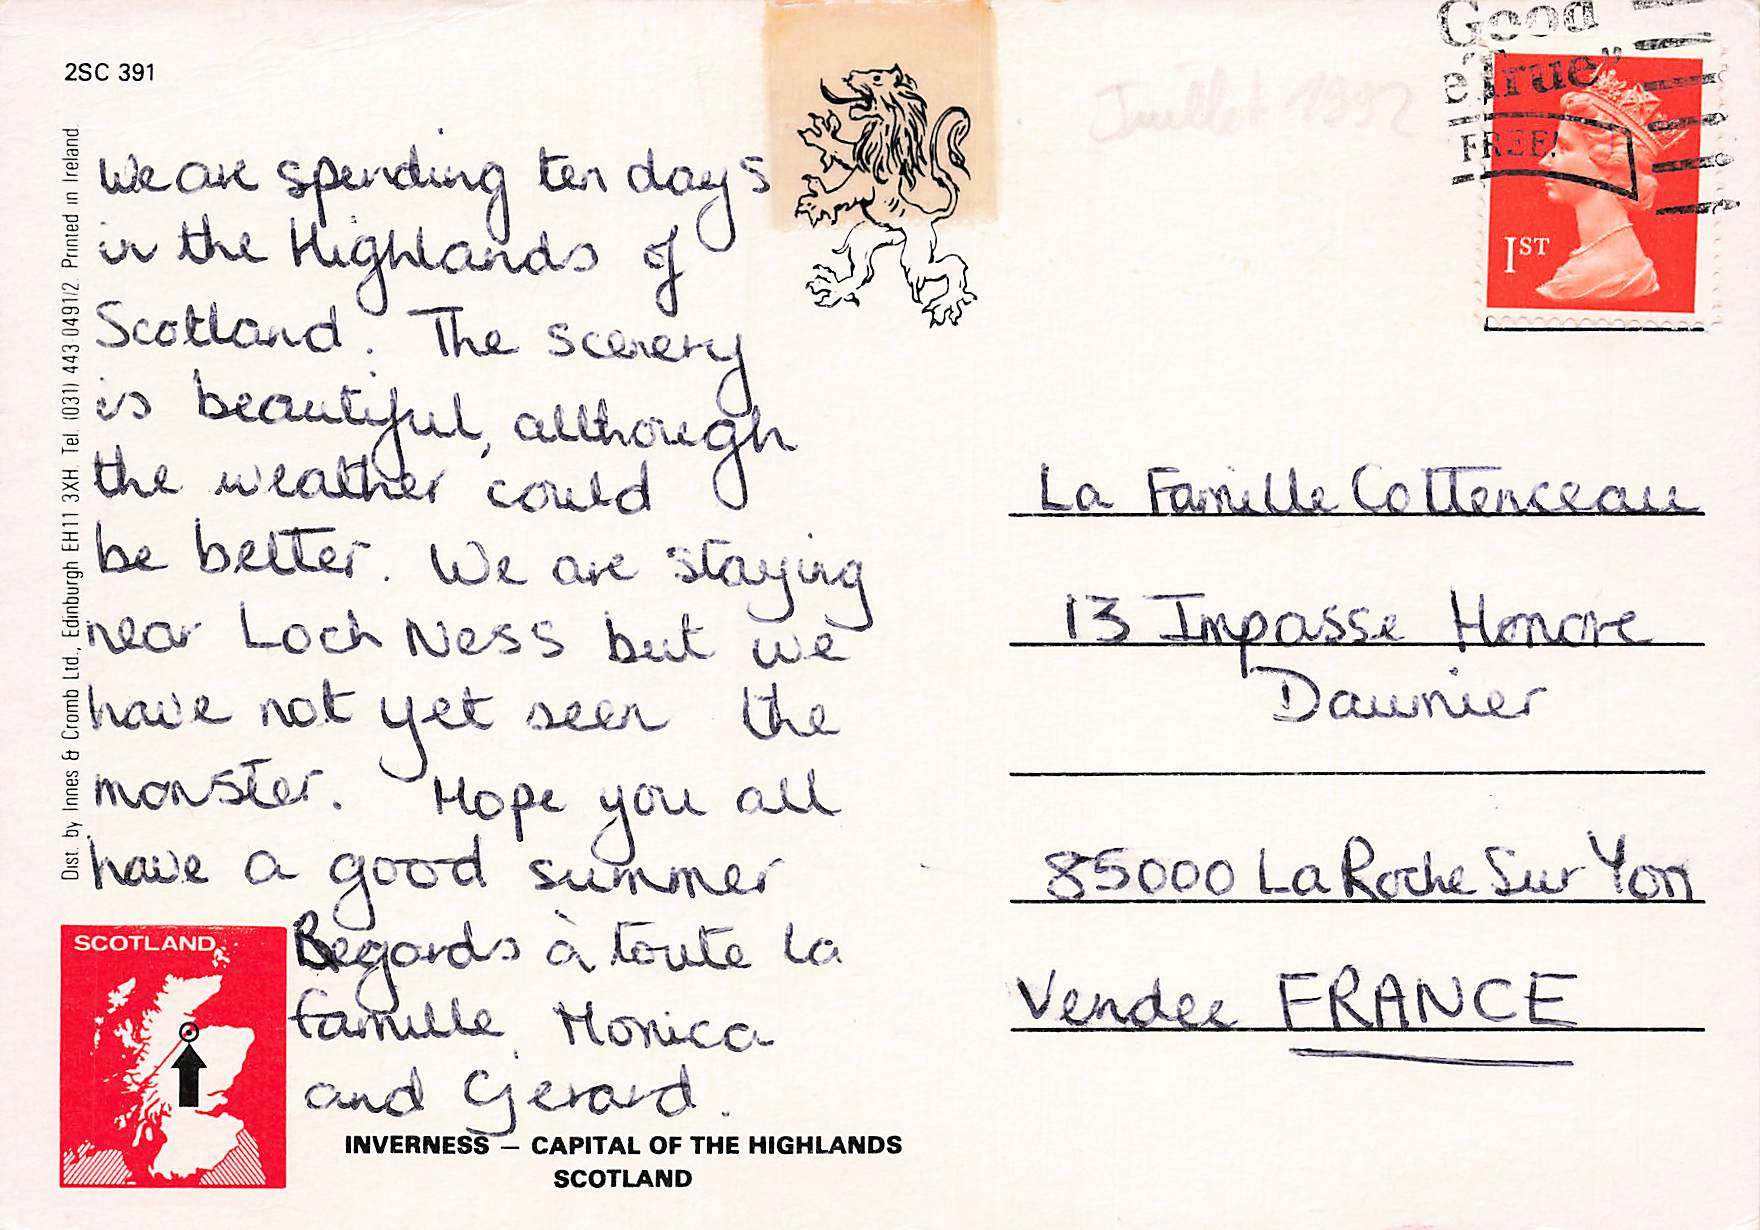 2SC 391
Dist. by Innes & Cromb Ltd., Edinburgh EH11 3XH. Tel. (031) 443 0491/2. Printed in Ireland
We are spending ten days
in the Highlands of
Scotland. The scenery
is beautiful, although
the weather could
be better. We are staying
near Loch Ness but we
have not yet seen the
monster. Hope you all
have a good summer
Regards à toute la
famille. Monica
and Gerard.
SCOTLAND
INVERNESS — CAPITAL OF THE HIGHLANDS
SCOTLAND
Juillet 1992
Good
e True"
FREE!
1ST
La Famille Cottenceau
13 Impasse Honore
Daumier
85000 La Roche Sur Yon
Vendee FRANCE